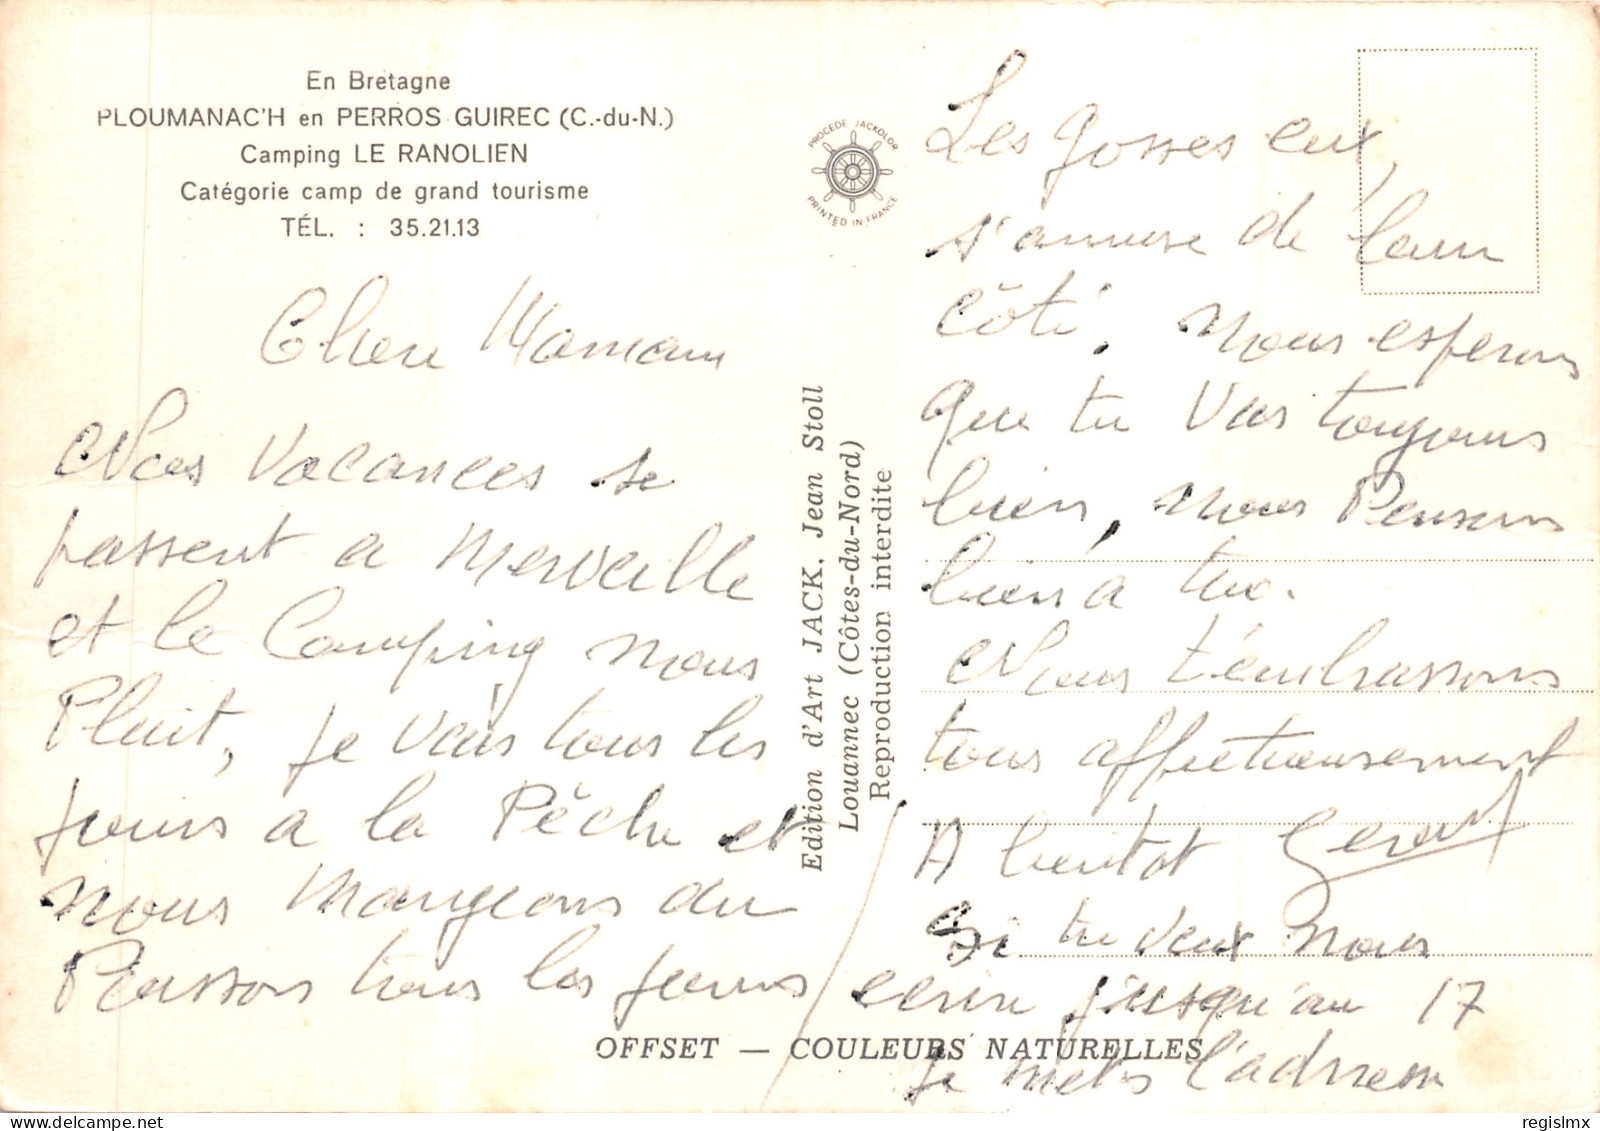 En Bretagne
PLOUMANAC'H en PERROS GUIREC (C.-du-N.)
Camping LE RANOLIEN
Catégorie camp de grand tourisme
TÉL. : 35.21.13
Chere Maman
Nos vacances se
passent a merveille
et le Camping nous
Plait, je vais tous les
jours a la Pêche et
nous mangeons du
Poisson tous les jours
PROCEDE JACKOLOR
PRINTED IN FRANCE
Edition d'Art JACK, Jean Stoll
Louannec (Côtes-du-Nord)
Reproduction interdite
Les gosses eux,
s'amuse de leur
côté, nous esperons
que tu vas toujours
bien, nous Pensons
bien a toi.
Nous t'embrassons
tous affectueusement
A bientot Gerard
Si tu veux nous
ecrire jusqu'au 17
je mets l'adresse
OFFSET — COULEURS NATURELLES
regislmx